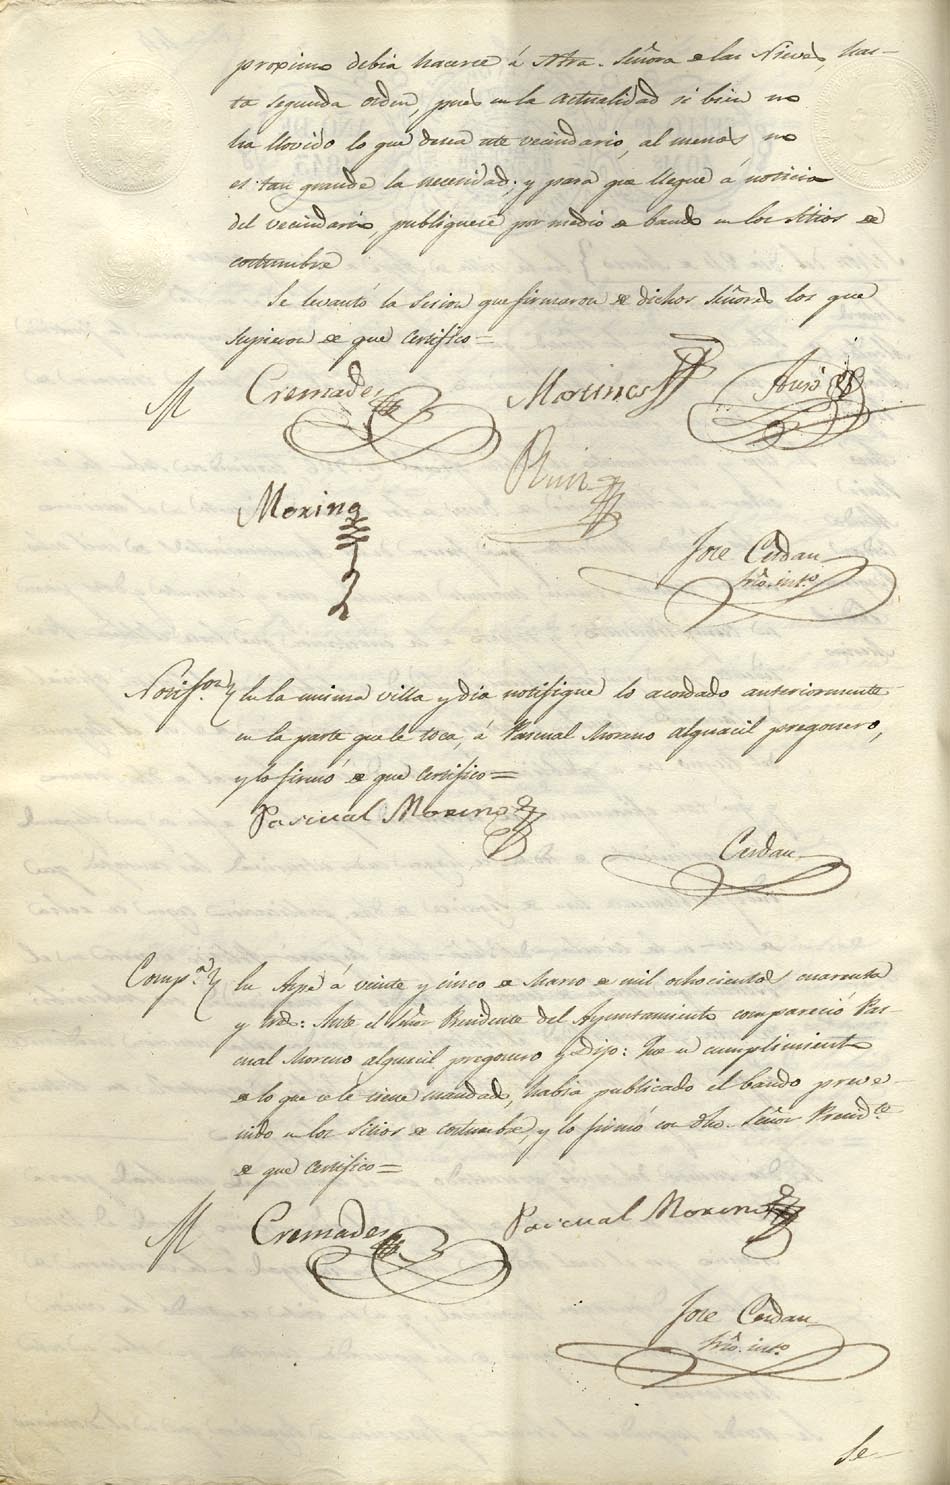 proximo debia hacerse á Ntra. Señora de las Nieves, has-
ta segunda orden, pues en la actualidad si bien no
ha llovido lo que desea este vecindario, al menos no
es tan grande la necesidad; y para que llegue á noticia
del vecindario, publiquese por medio de bando en los sitios de
costumbre
Se levantó la sesion que firmaron de dichos Señores los que
supieron de que certifico=
Cremades
Martinez
Moreno
Jose Cerdan
Srio. into.
Notifon. En la misma villa y dia notifique lo acordado anteriormente
en la parte que le toca, á Pascual Moreno alguacil pregonero,
y lo firmó de que certifico=
Pascual Moreno
Cerdan
Compa. En Aspe á veinte y cinco de Marzo de mil ochocientos cuarenta
y tres: Ante el Señor Presidente del Ayuntamiento compareció Pas-
cual Moreno alguacil pregonero y Dijo: Que en cumplimiento
de lo que se le tiene mandado, habia publicado el bando preve
nido en los sitios de costumbre, y lo firmó con dho. Señor Presidte.
de que certifico=
Cremades
Pascual Moreno
Jose Cerdan
Srio. into.
Se